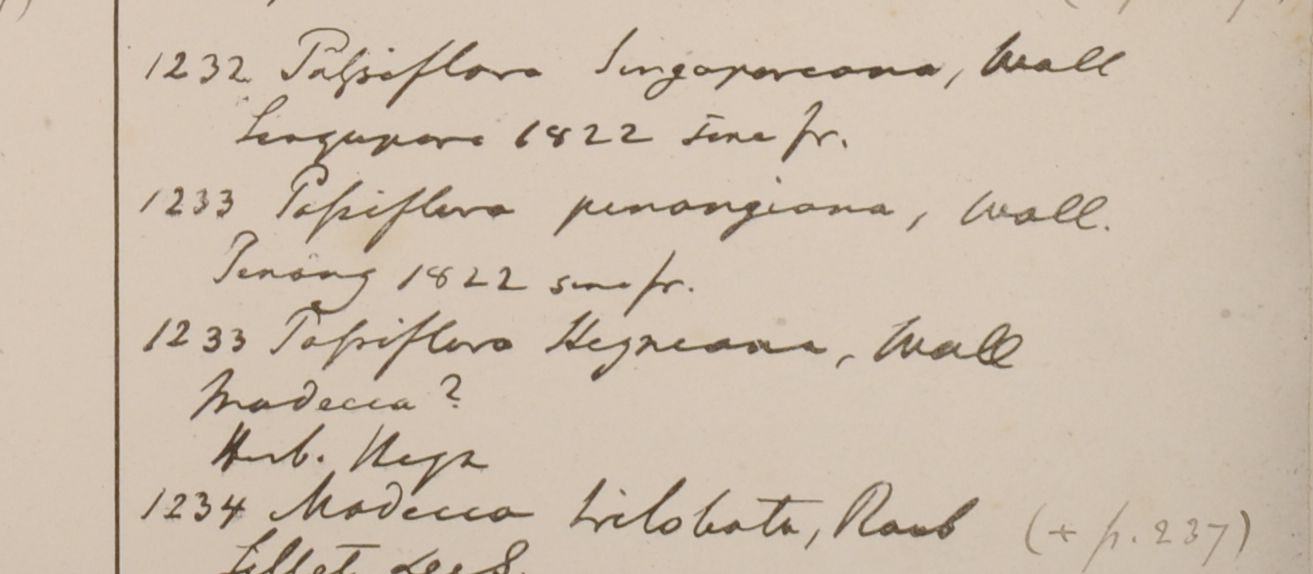 1232 Passiflora Singaporeana, Wall
Singapore 1822 sine fr.
1233 Passiflora penangiana, Wall.
Penang 1822 sine fr.
1233 Passiflora Heyneana, Wall
Modecca?
Herb. Heyn
1234 Modecca trilobata, Roxb (+ p. 237)
Sillet